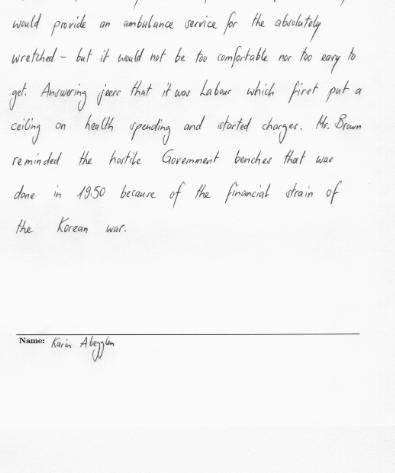 would provide an ambulance service for the absolutely
wretched - but it would not be too comfortable nor too easy to
get. Answering jeers that it was Labour which first put a
ceiling on health spending and started charges. Mr. Brown
reminded the hostile Government benches that was
done in 1950 because of the financial strain of
the Korean war.
Name: Karin Abegglen